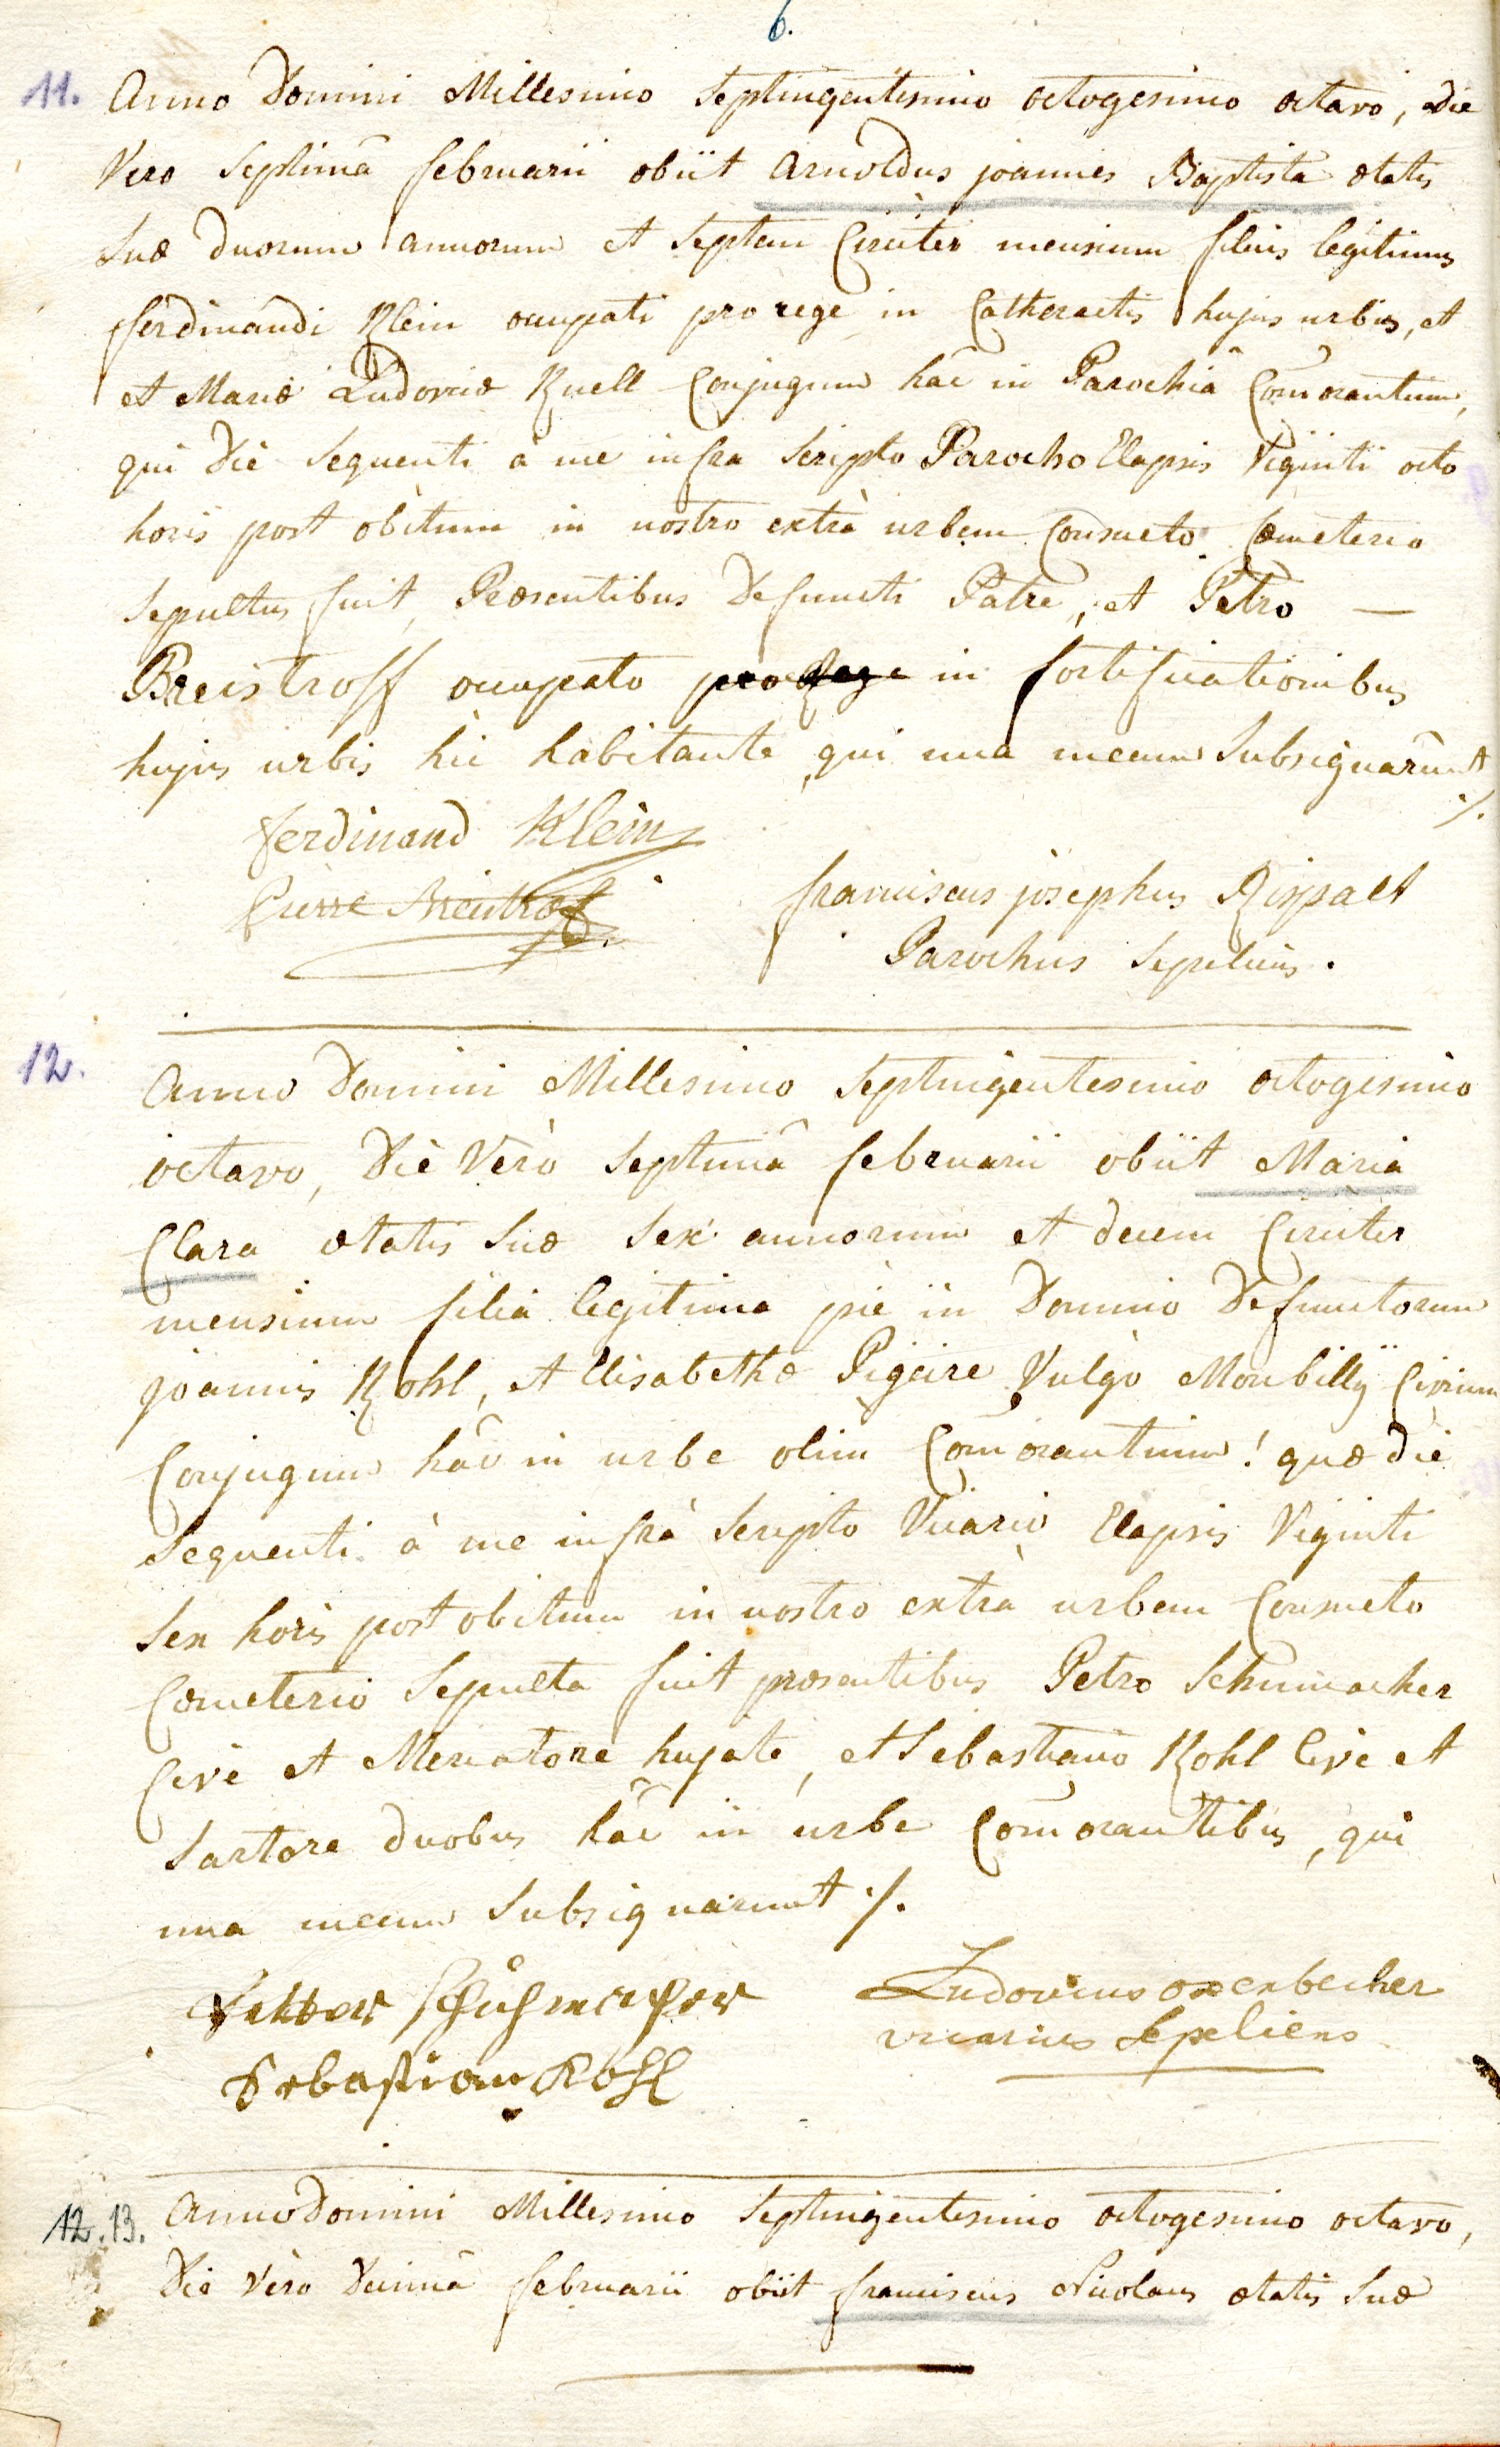 6.
11. Anno Domini Millesimo Septingentesimo octogesimo octavo, die
Vero Septimâ februarii obiit Arnoldus joannes Baptista ætatis
Suæ duorum annorum et Septem Circiter mensium filius legitimus
ferdinandi Klein occupati pro rege in Catheractis hujus urbis, et
et Mariæ Ludovicæ Knell Conjugum hâc in Parochiâ Com̃orantium,
qui die Sequenti à me infra Scripto Parocho Elapsis Viginti octo
horis post obitum in nostro extrà urbem Consueto Cœmeterio
Sepultus fuit, Præsentibus Defuncti Patre, et Petro —
Breistroff occupato pro Rege in fortificationibus
hujus urbis hic habitante qui una mecum Subsignarunt ./.
ferdinand Klein
Pierre Breistroff
franciscus josephus Rispalt
Parochus Sepeliens.
12. Anno Domini Millesimo Septingentesimo octogesimo
octavo, Diè Verò Septimâ februarii obiit Maria
Clara ætatis Suæ Sex annorum et decem Circiter
mensium filia legitima piè in Domino Defunctorum
joannis Kohl, et Elisabethæ Pigeire Vulgò Monbillÿ Civium
Conjugum hâc in urbe olim Com̃orantium! quæ die
Sequenti à me infrà Scripto Vicario Elapsis Viginti
Sex horis post obitum in nostro extrà urbem Consueto
Cœmeterio Sepulta fuit præsentibus Petro Schumacher
Cive et Mercatore hujate, et Sebastiano Kohl Cive et
Sartore duobus hâc in urbe Com̃orantibus, qui
una mecum Subsignarunt ./.
Petter Schuhmacher
Sebastian Kohl
Ludovicus oxenbecher
vicarius Sepeliens
12. 13. Anno Domini Millesimo Septingentesimo octogesimo octavo,
Die Vero Decimâ februarii obiit franciscus Nicolaus ætatis Suæ